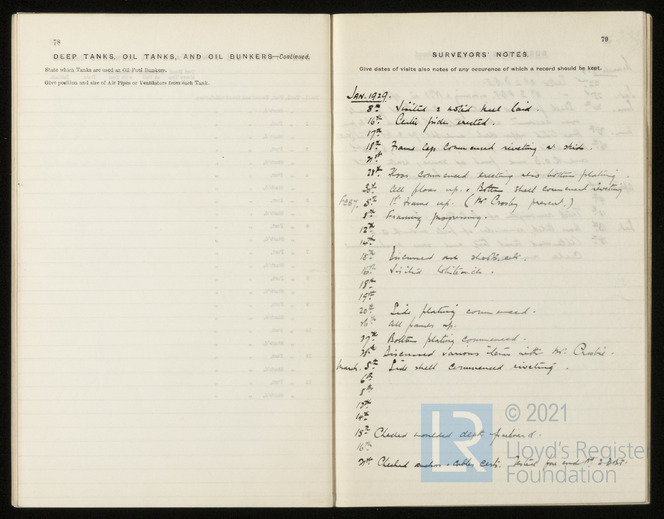 78
DEEP TANKS, OIL TANKS, AND OIL BUNKERS—Continued.
State which Tanks are used as Oil Fuel Bunkers.
Give position and size of Air Pipes or Ventilators from each Tank.
79
SURVEYORS' NOTES.
Give dates of visits also notes of any occurence of which a record should be kept.
JAN. 1929.
8th Visited & noted keel laid.
16th Centre girder erected.
17th
18th Frame legs commenced riveting at skids.
21st
28th Floors commenced erecting also bottom plating.
30th All floors up. & Bottom shell commenced riveting
Feby. 5th 1st Frame up. (Mr Crosby present.)
8th Framing progressing.
12th
14th
15th
16th Visited
18th
19th
20th Side plating commenced.
26th All frames up.
27th Bottom plating commenced.
28th Discussed various items with Mr.
March. 5th Side shell commenced riveting.
6th
8th
13th
14th
15th Checked moulded depth
16th
21st Checked anchor & cable certs.
© 2021
LR
Lloyd's Register
Foundation